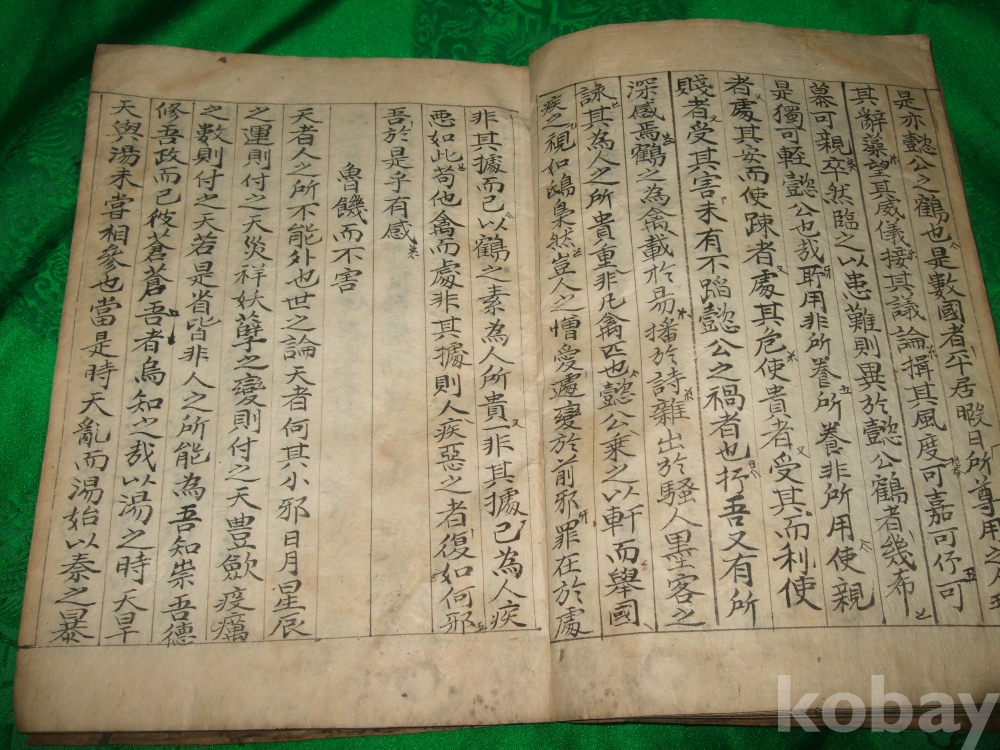 是亦懿公之鶴也是數國者平居暇日所尊用之人玉
其辭藻望其威儀接其議論揖其風度可嘉可仰可
慕可親卒然臨之以患難則異於懿公鶴者幾希
是獨可輕懿公也哉所用非所養所養非所用使親
者處其安而使踈者處其危使貴者受其而利使
賤者受其害未有不蹈懿公之禍者也抑吾又有所
深感焉鶴之為禽載於易播於詩雜出於騷人墨客之
詠其為人之所貴重非凡禽匹也懿公乘之以軒而舉國
疾之視如鴟梟然豈人之憎愛遽變於前邪罪在於處
非其據而已以鶴之素為人所貴一非其據已為人疾
惡如此苟他禽而處非其據則人疾惡之者復如何邪
吾於是乎有感
魯饑而不害
天者人之所不能外也世之論天者何其小邪日月星辰
之運則付之天災祥妖孽之變則付之天豊歉疫癘
之數則付之天若是省皆非人之所能為吾知崇吾德
修吾政而已彼蒼蒼吾者烏知之哉以湯之時天旱
天與湯未甞相參也當是時天亂而湯始以秦之暴
kobay